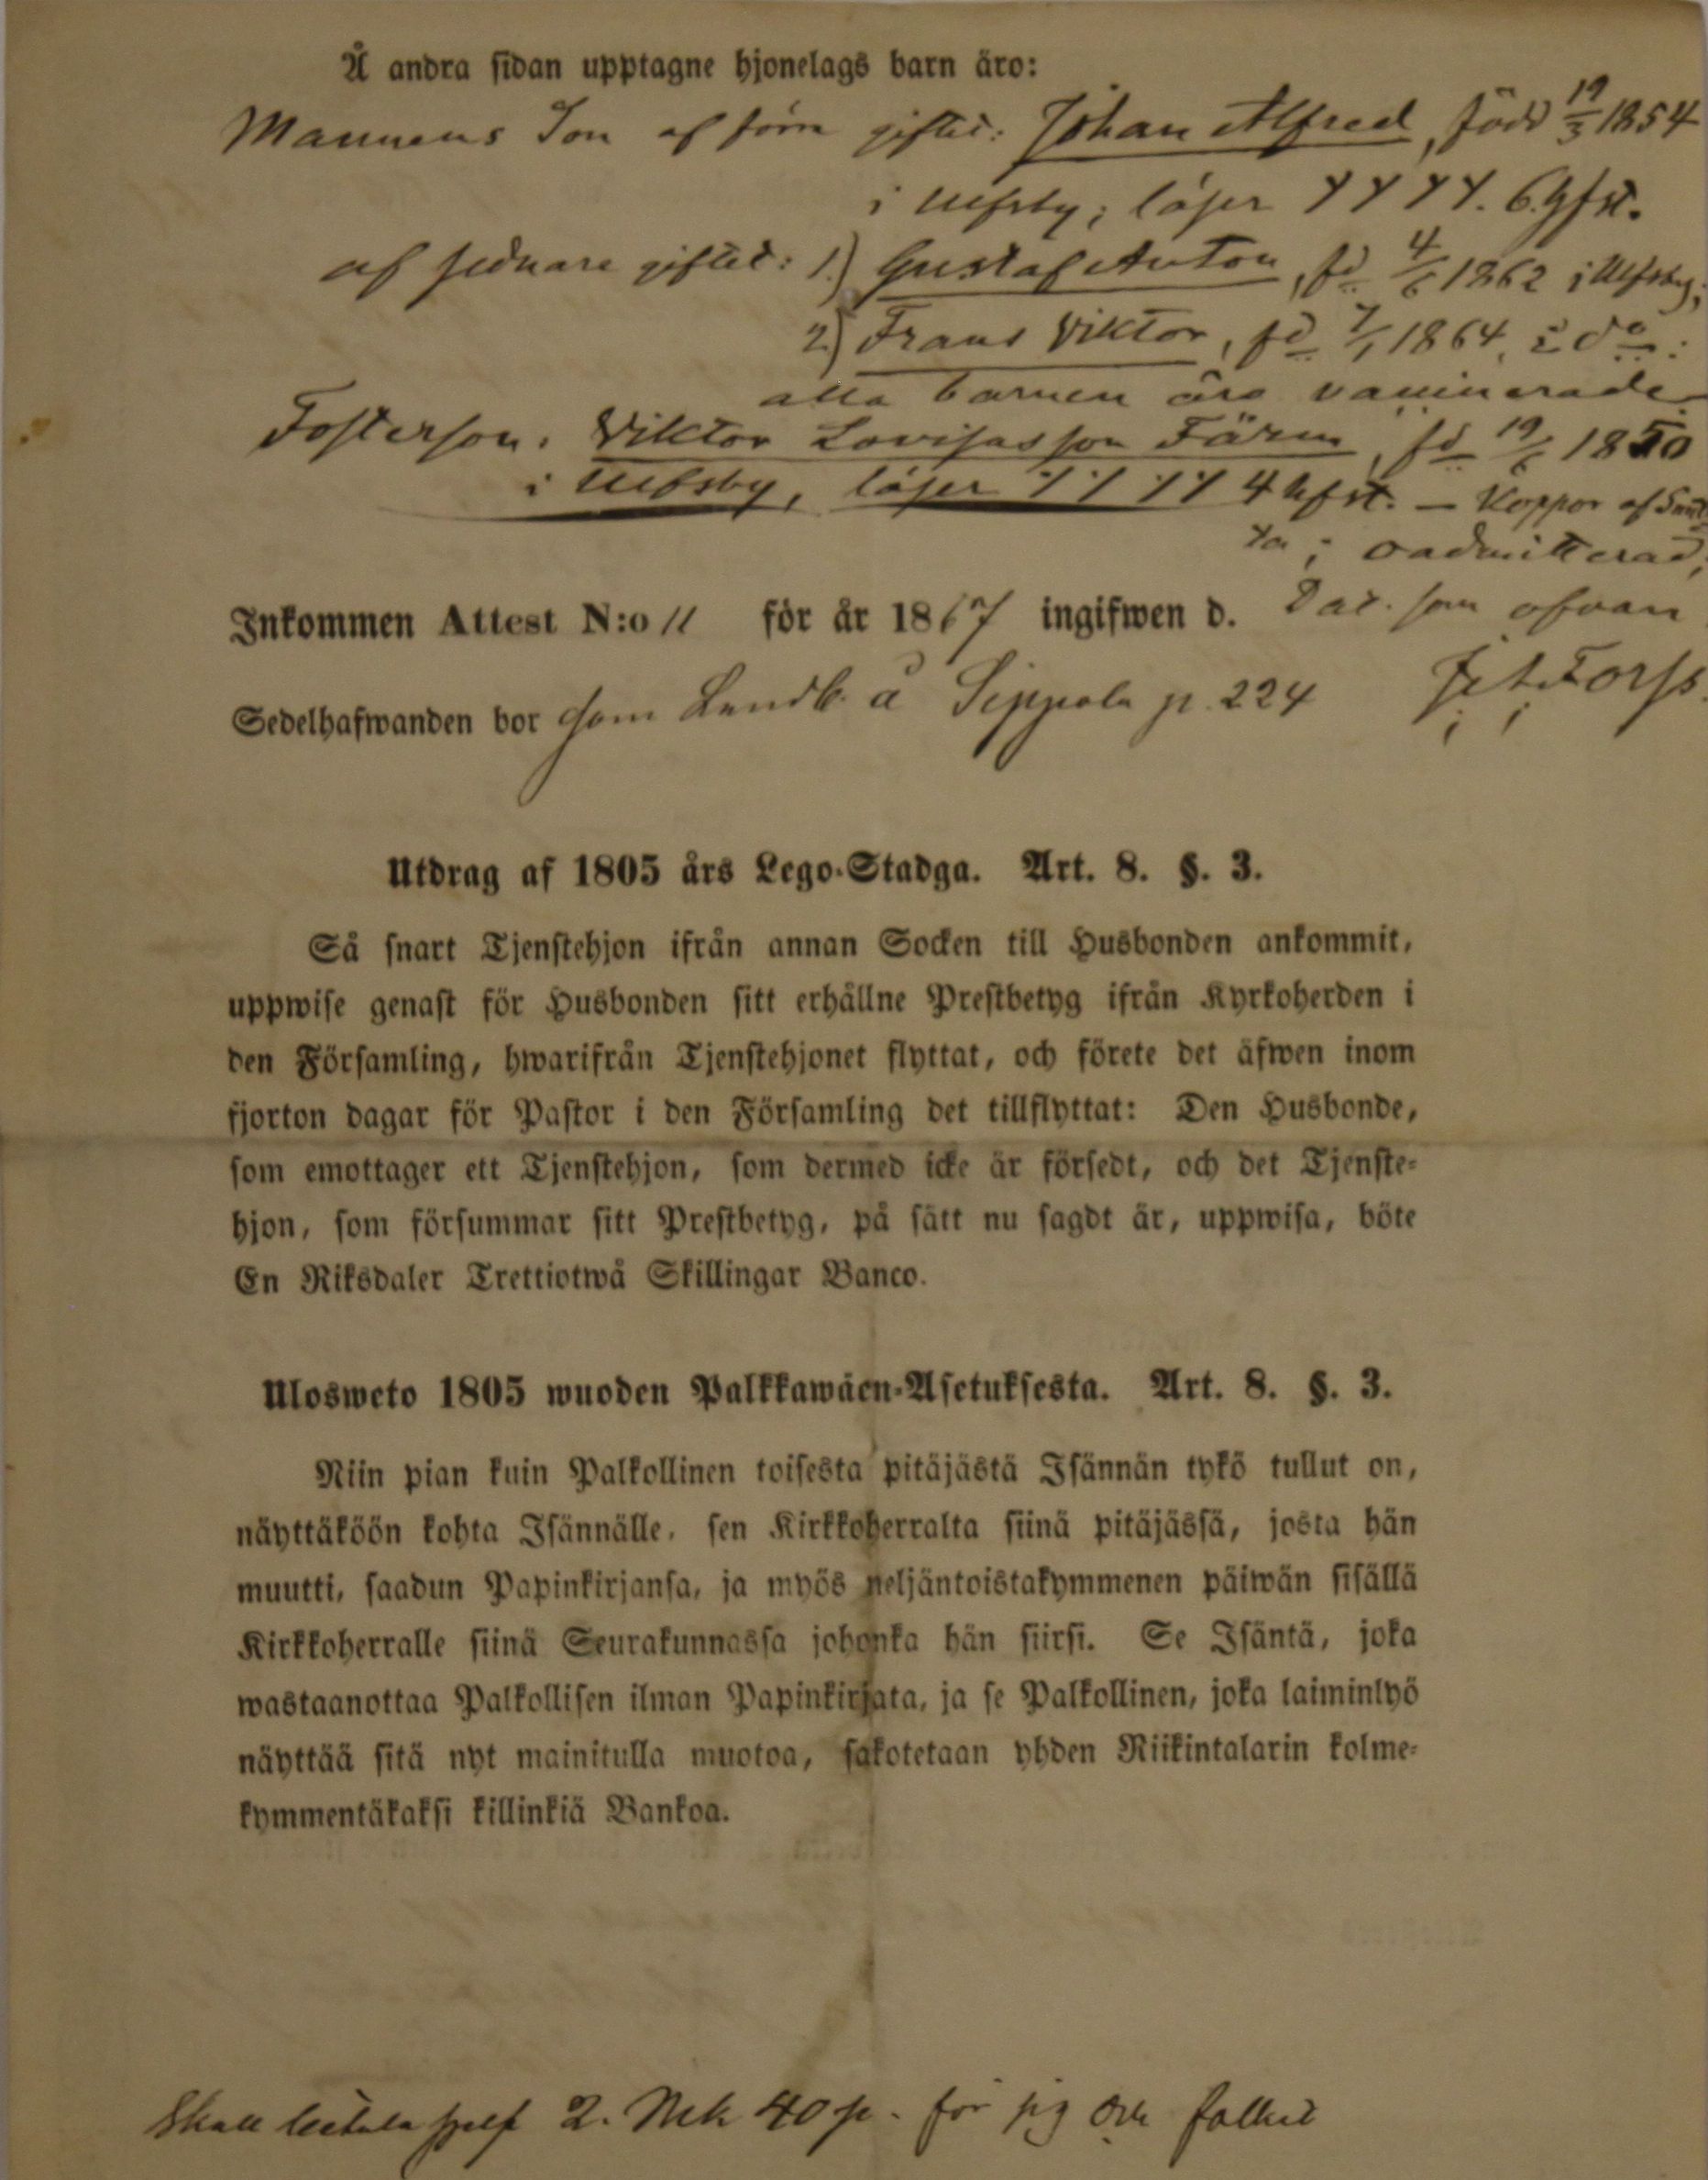 Å andra sidan upptagne hjonelags barn äro:
Mannens Son af förra giftet: Johan Alfred, född 19/3 1854
i Ulfsby; läser
af sednare giftet: 1.) Gustaf Anton, fd 4/6 1862 i Ulfsby;
2.) Frans Viktor, fd 7/1 1864, i do:
alla barnen äro vaccinerade
Fosterson: Viktor Lovisasson Färm, fd 19/6 1850
i Ulfsby, läser 4 hfst. — Koppor af
oadmitterad;
Inkommen Attest N:o 11 för år 1867 ingifwen d. Dat. som ofvan
Sedelhafwanden bor som Landb. å Sippola p. 224 Forss.
Utdrag af 1805 års Lego-Stadga. Art. 8. §. 3.
Så snart Tjenstehjon ifrån annan Socken till Husbonden ankommit,
uppwise genast för Husbonden sitt erhållne Prestbetyg ifrån Kyrkoherden i
den Församling, hwarifrån Tjenstehjonet flyttat, och förete det äfwen inom
fjorton dagar för Pastor i den Församling det tillflyttat: Den Husbonde,
som emottager ett Tjenstehjon, som dermed icke är försedt, och det Tjenste-
hjon, som försummar sitt Prestbetyg, på sätt nu sagdt är, uppwisa, böte
En Riksdaler Trettiotwå Skillingar Banco.
Ulosweto 1805 wuoden Palkkawäen-Asetuksesta. Art. 8. §. 3.
Niin pian kuin Palkollinen toisesta pitäjästä Isännän tykö tullut on,
näyttäköön kohta Isännälle, sen Kirkkoherralta siinä pitäjässä, josta hän
muutti, saadun Papinkirjansa, ja myös neljäntoistakymmenen päiwän sisällä
Kirkkoherralle siinä Seurakunnassa johonka hän siirsi. Se Isäntä, joka
wastaanottaa Palkollisen ilman Papinkirjata, ja se Palkollinen, joka laiminlyö
näyttää sitä nyt mainitulla muotoa, sakotetaan yhden Riikintalarin kolme-
kymmentäkaksi killinkiä Bankoa.
Skall betala sjelf 2. Mk 40 p. för sig och folket